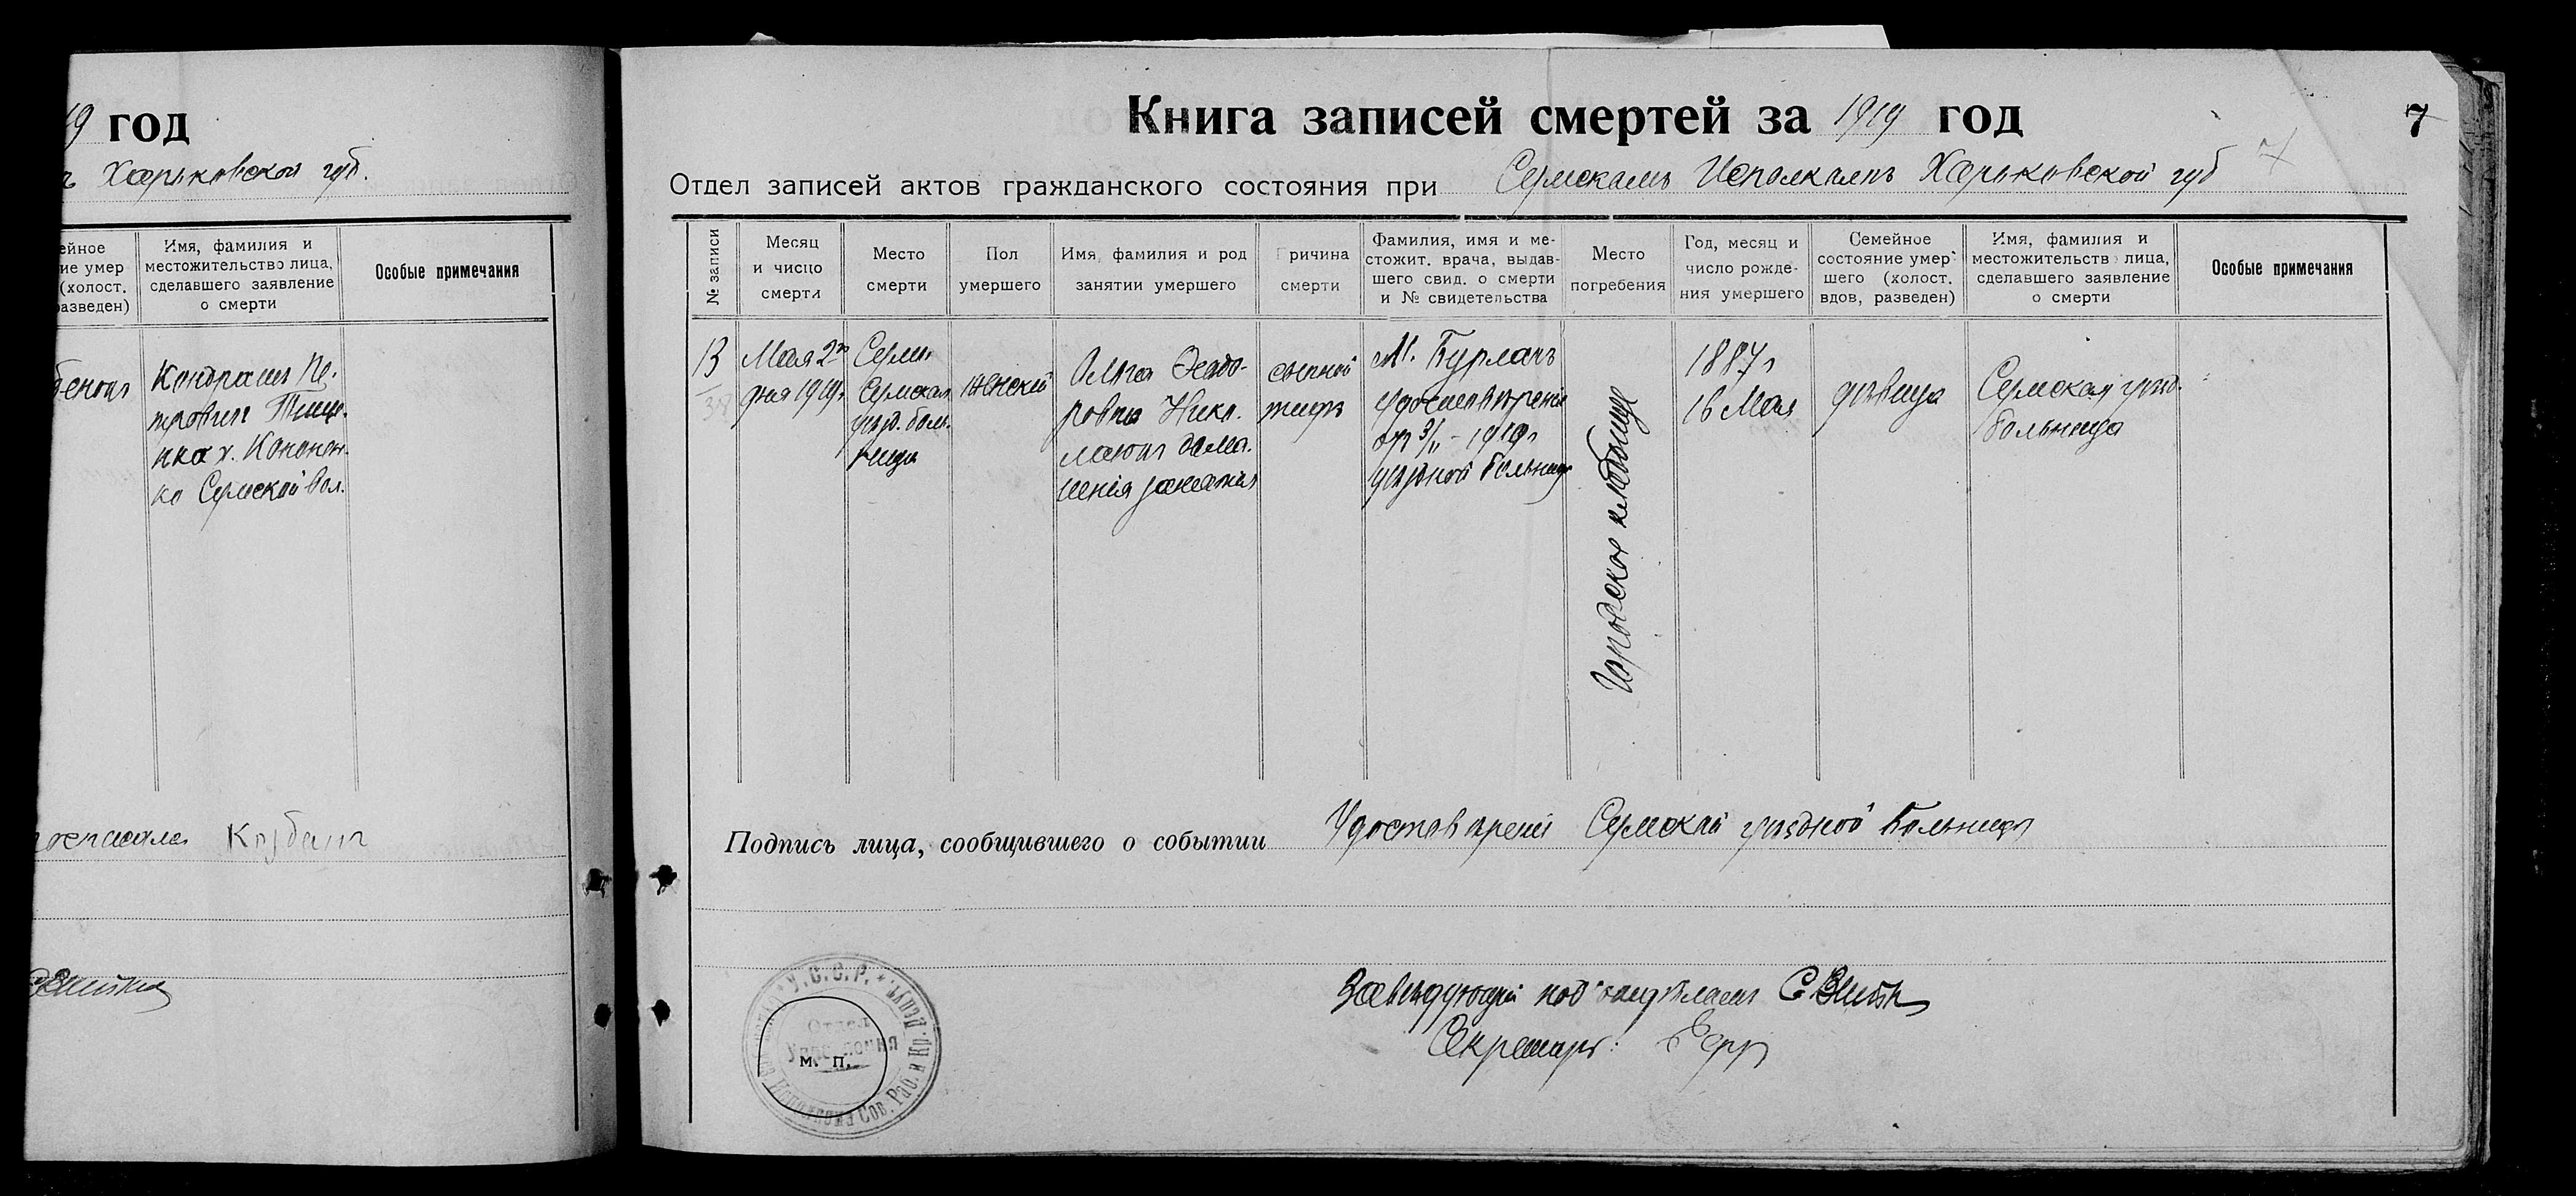 19 год
Харьковской губ.
ейное
ие умер
(холост.
разведен)
Имя, фамилия и
местожительство лица,
сделавшего заявление
о смерти
Особые примечания
Кондрат Пе-
трович Тище-
нко х. Кононен-
ко Сумской вол.
Книга записей смертей за 1919 год
7
Отдел записей актов гражданского состояния при Сумскомъ Исполкомъ Харьковской губ
7
№ записи
Месяц
и чисцо
смерти
Место
смерти
Пол
умершего
Имя, фамилия и род
занятии умершего
Причина
смерти
Фамилия, имя и ме-
стожит. врача, выдав-
шего свид. о смерти
и № свидетельства
Место
погребения
Год, месяц и
число рожде-
ния умершего
Семейное
состояние умер-
шего (холост.
вдов, разведен)
Имя, фамилия и
местожительство лица,
сделавшего заявление
о смерти
Особые примечания
13
Мая 2го
дня 1919г
Сумы
Сумская
уезд. боль-
ница
Женский
Ольга Федо-
ровна
дома-
шнія занятія
сыпной
тифъ
М. Бурлачъ
удостовѣреніе
от 3/ - 1919г
уѣздной больницы
Городское кладбище
1887г
16 Мая
дѣвица
Сумская уезд.
больница
Подпись лица, сообщившего о событии Удостовѣреніе Сумской уѣздной больницы
У.С.С.Р.
Отдел
Управления
м. п.
Сов. Раб. и Кр. Депут.
Завѣдующій подъотдѣломъ
Секретарь: